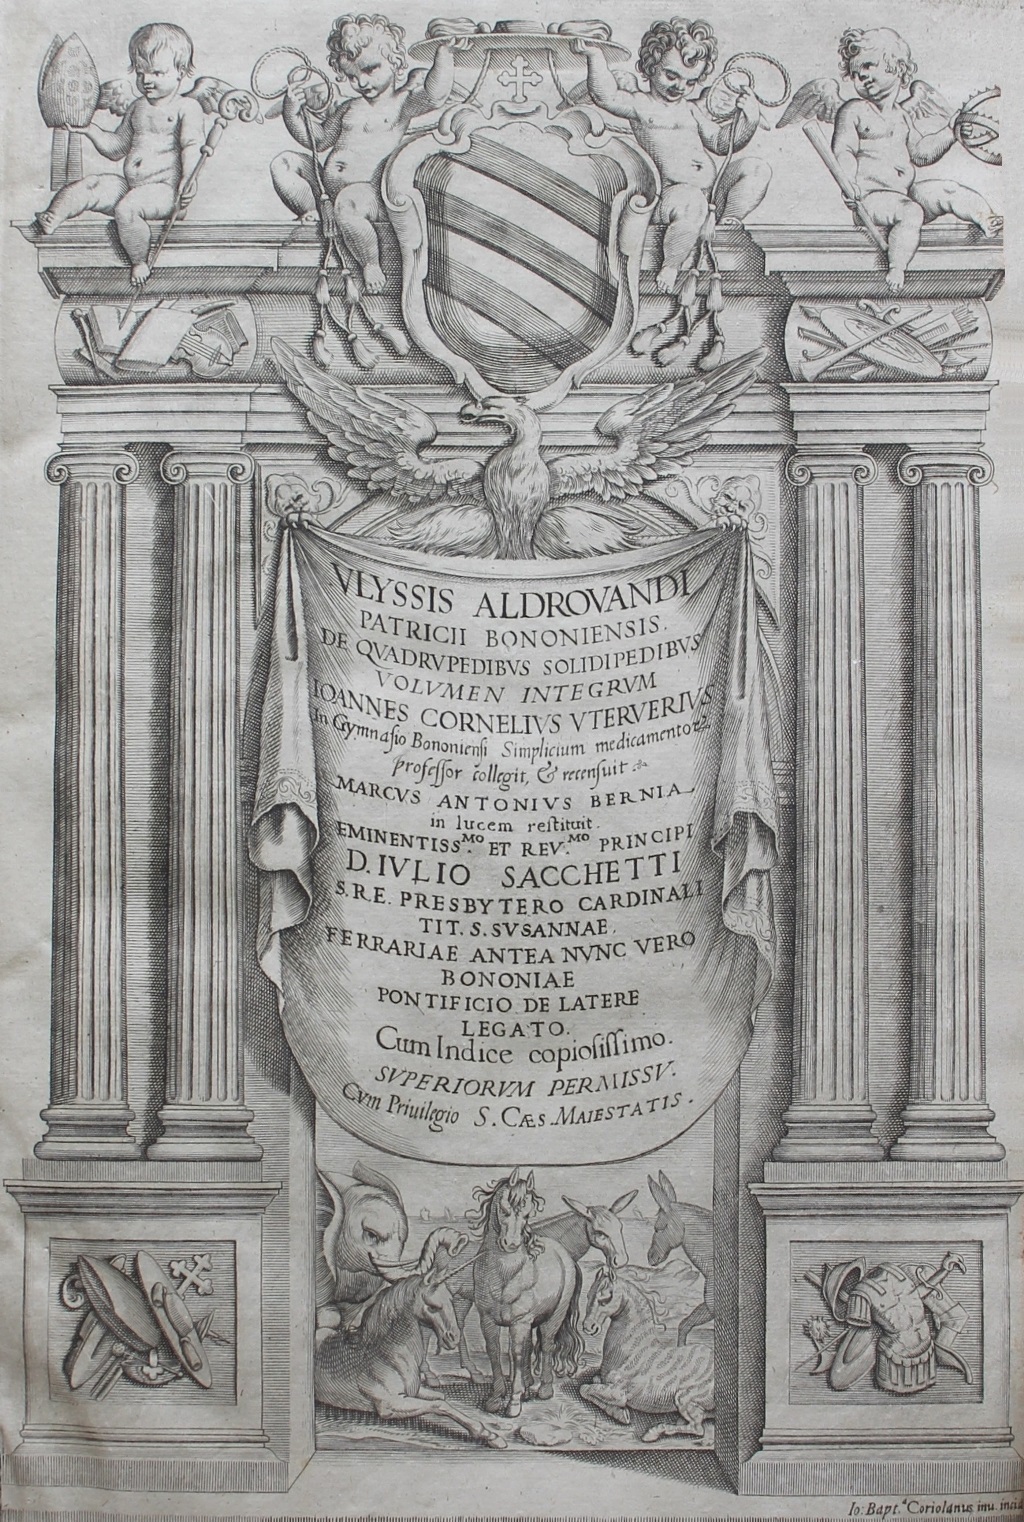 VLYSSIS ALDROVANDI
PATRICII BONONIENSIS.
DE QVADRVPEDIBVS SOLIDIPEDIBVS
VOLVMEN INTEGRVM
IOANNES CORNELIVS VTERVERIVS
In Gymnasio Bononiensi Simplicium medicamentoꝝ
professor collegit, & recensuit
MARCVS ANTONIVS BERNIA
in lucem restituit.
EMINENTISS.MO ET REV.MO PRINCIPI
D. IVLIO SACCHETTI
S.R.E. PRESBYTERO CARDINALI
TIT. S. SVSANNAE.
FERRARIAE ANTEA NVNC VERO
BONONIAE
PONTIFICIO DE LATERE
LEGATO.
Cum Indice copiosissimo.
SVPERIORVM PERMISSV.
Cum Priuilegio S. CÆS. MAIESTATIS.
Io: Bapt.a Coriolanus inu. incid